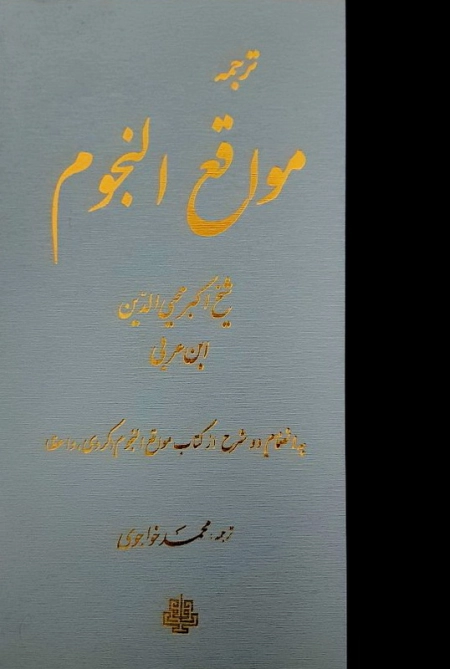 ترجمه
مواقع النجوم
شیخ اکبر محیی الدّین
ابن عربی
به انضمام دو شرح از کتاب مواقع النجوم
ترجمه: محمد خواجوی